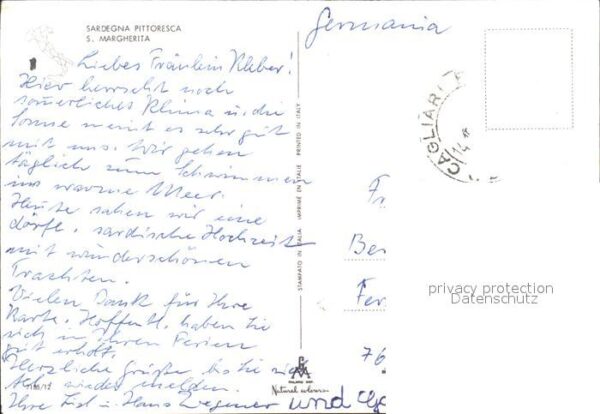 SARDEGNA PITTORESCA
S. MARGHERITA
Germania
Liebes Fräulein Kleber!
Hier herrscht noch
somerliches Klima u. die
Sonne meint es sehr gut
mit uns. Wir gehen
täglich zum Schwimmen
ins warme Meer.
Heute sahen wir eine
dörfl. sardische Hochzeit
mit wunderschönen
Trachten.
Vielen Dank für Ihre
Karte. Hoffentl. haben Sie
sich in Ihren Ferien
gut erholt.
Herzliche Grüße, bis Sie sich
wieder melden.
Ihre u. Hans und
STAMPATO IN ITALIA IMPRIMÉ EN ITALIE PRINTED IN ITALY
CAGLIARI
Fr
Ber
Fer
76
privacy protection
Datenschutz